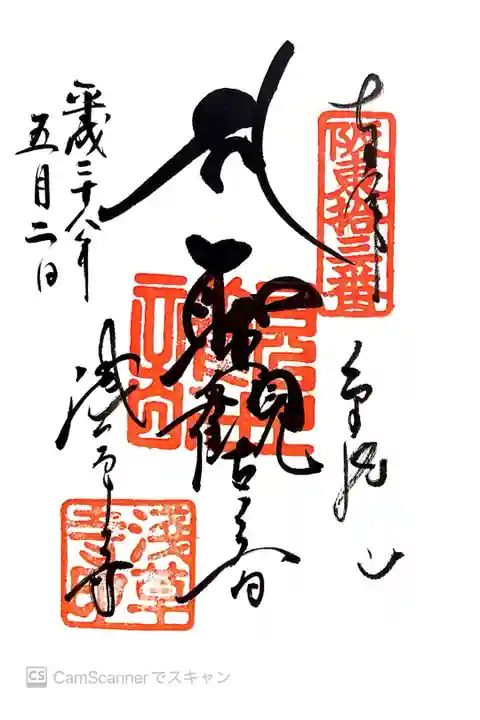 奉拝
阪東拾三番
金龍山
聖觀世音
平成二十八年
五月二日
淺草寺
淺草寺印
CS CamScannerでスキャン